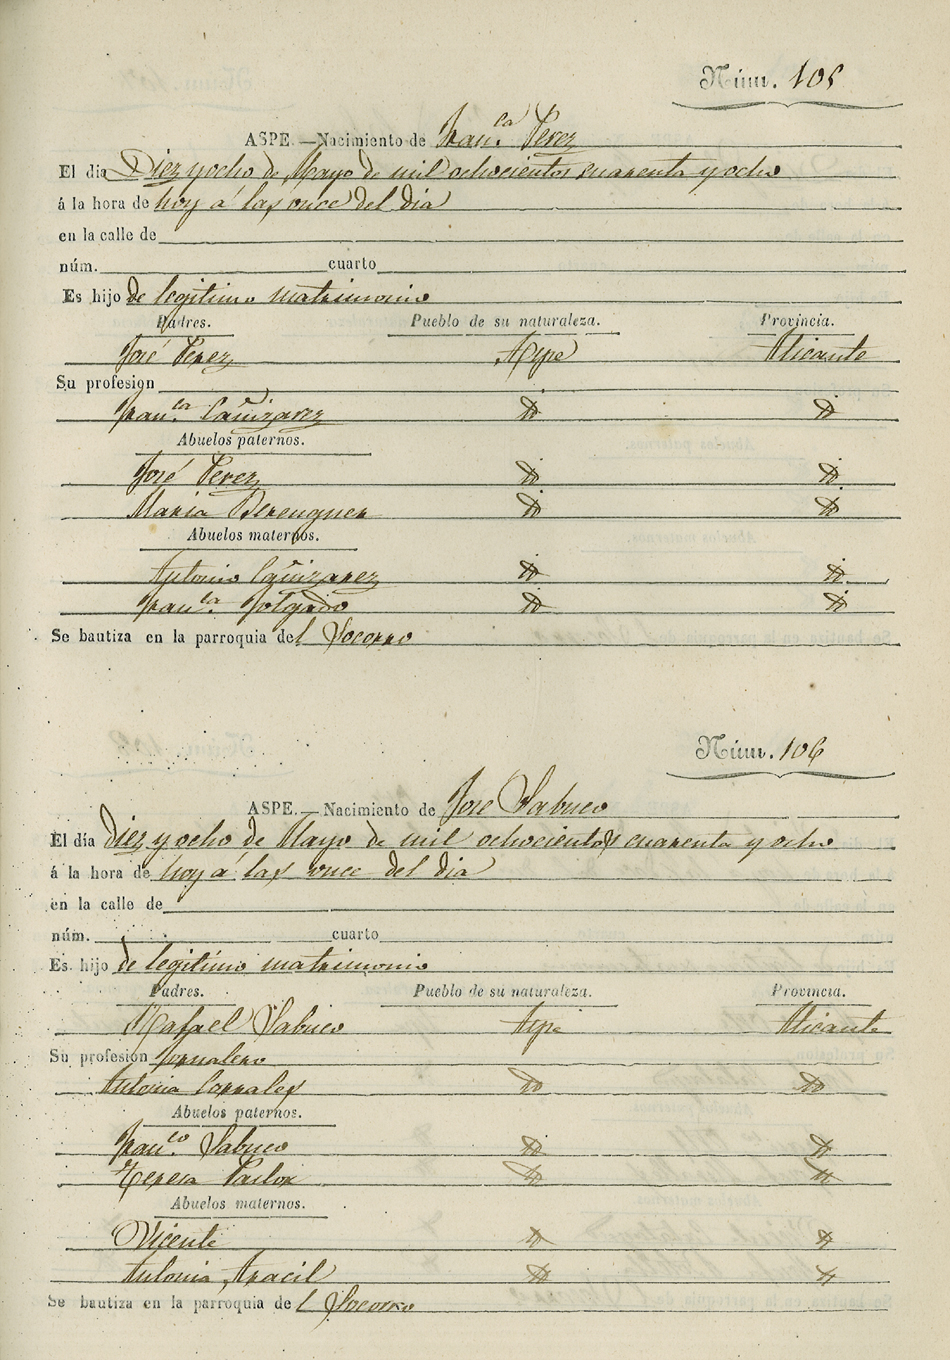 Núm. 105
ASPE.—Nacimiento de Fran.ca Perez
El día Diez y ocho de Mayo de mil ochocientos cuarenta y ocho
á la hora de hoy á las once del dia
en la calle de
núm. cuarto
Es hijo de legitimo matrimonio
Padres. Pueblo de su naturaleza. Provincia.
José Perez Aspe Alicante
Su profesion
Fran.ca Cañizarez Yd. Yd.
Abuelos paternos.
José Perez Yd. Yd.
Maria Berenguer Yd. Yd.
Abuelos maternos.
Antonio Cañizarez Yd. Yd.
Fran.ca Yd. Yd.
Se bautiza en la parroquia del Socorro
Núm. 106
ASPE.—Nacimiento de José Sabuco
El día diez y ocho de Mayo de mil ochocientos cuarenta y ocho
á la hora de hoy á las once del dia
en la calle de
núm. cuarto
Es hijo de legitimo matrimonio
Padres. Pueblo de su naturaleza. Provincia.
Rafael Sabuco Aspe Alicante
Su profesion Jornalero
Antonia Corrales Yd. Yd.
Abuelos paternos.
Fran.co Sabuco Yd. Yd.
Teresa Pastor Yd. Yd.
Abuelos maternos.
Vicente Yd. Yd.
Antonia Aracil Yd. Yd.
Se bautiza en la parroquia del Socorro